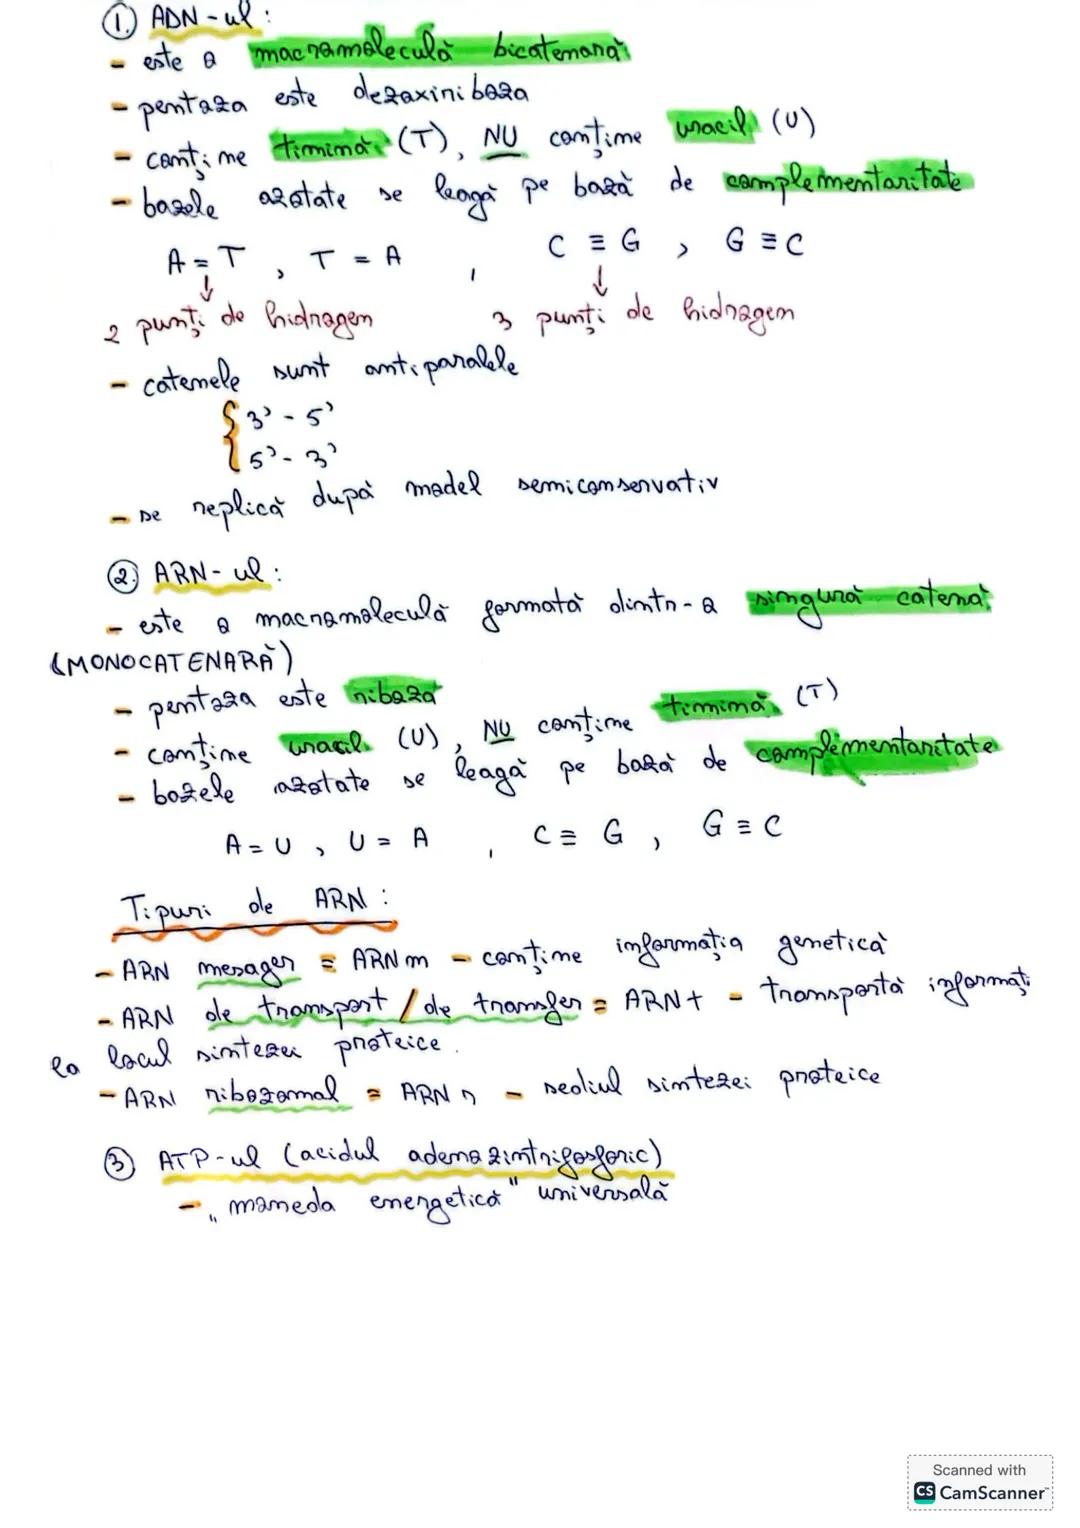 1. ADN-ul :
- este o macromoleculă bicatenară
- pentoza este dezoxiriboza
- conține timină (T), NU conține uracil (U)
- bazele azotate se leagă pe bază de complementaritate
A = T , T = A , C ≡ G , G ≡ C
↓ ↓
2 punți de hidrogen 3 punți de hidrogen
- catenele sunt antiparalele
{ 3' - 5'
5' - 3'
- se replică după model semiconservativ
2. ARN-ul :
- este o macromoleculă formată dintr-o singură catenă
(MONOCATENARĂ)
- pentoza este riboza
- conține uracil (U), NU conține timină (T)
- bazele azotate se leagă pe bază de complementaritate
A = U , U = A , C ≡ G , G ≡ C
Tipuri de ARN :
- ARN mesager = ARN m - conține informația genetică
- ARN de transport / de transfer = ARN t - transportă informați
la locul sintezei proteice.
- ARN ribozomal = ARN r - sediul sintezei proteice
3 ATP-ul (acidul adenozintrifosforic)
- „moneda energetică" universală
Scanned with
CS CamScanner